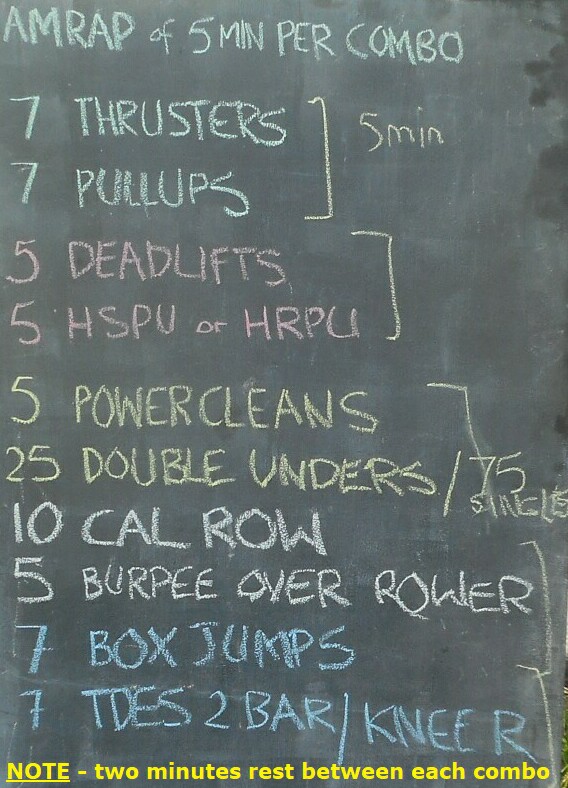 AMRAP of 5 MIN PER COMBO
7 THRUSTERS 5 min
7 PULLUPS
5 DEADLIFTS
5 HSPU or HRPU
5 POWERCLEANS
25 DOUBLE UNDERS / 75 SINGLES
10 CAL ROW
5 BURPEE OVER ROWER
7 BOX JUMPS
7 TOES 2 BAR / KNEE R
NOTE - two minutes rest between each combo